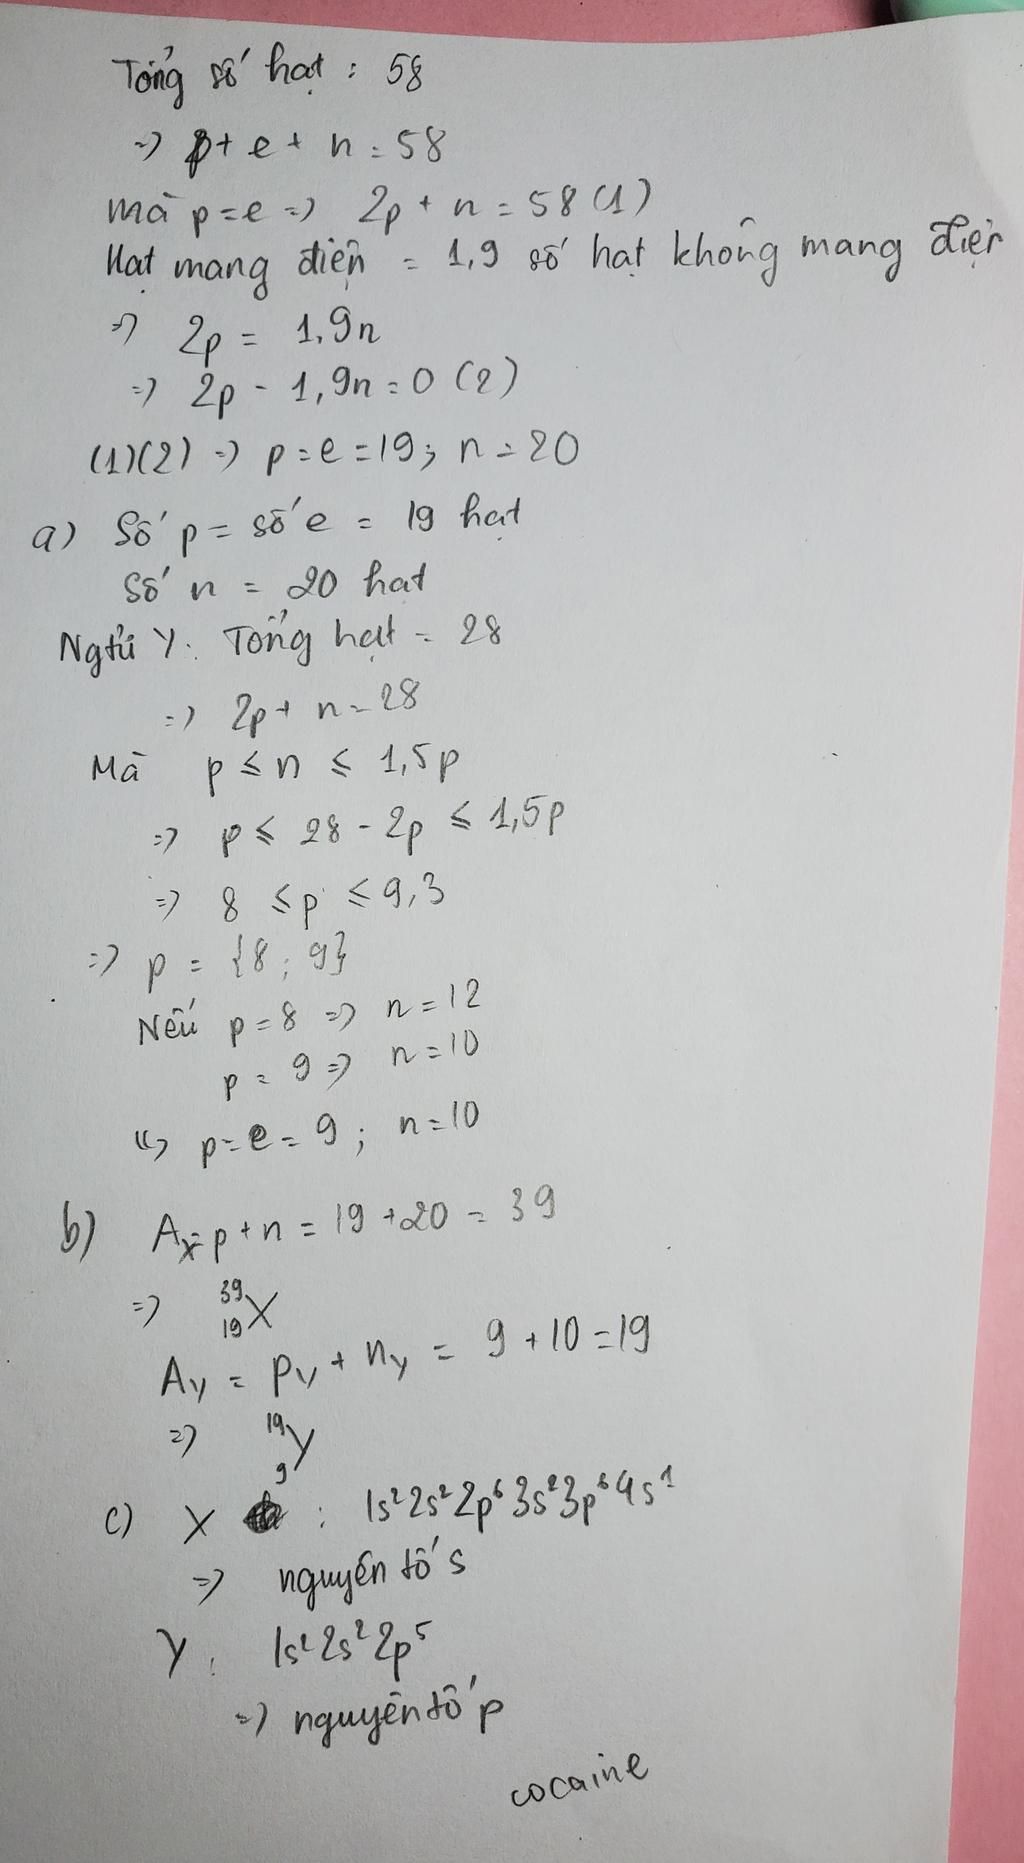 Tổng số hạt : 58
=> p + e + n = 58
mà p = e => 2p + n = 58 (1)
Hạt mang điện = 1,9 số hạt không mang điện
=> 2p = 1,9n
=> 2p - 1,9n = 0 (2)
(1)(2) => p = e = 19; n = 20
a) Số p = số e = 19 hạt
Số n = 20 hạt
Ngtử Y : Tổng hạt = 28
=> 2p + n = 28
Mà p ≤ n ≤ 1,5p
=> p ≤ 28 - 2p ≤ 1,5p
=> 8 ≤ p ≤ 9,3
=> p = {8; 9}
Nếu p = 8 => n = 12
p = 9 => n = 10
=> p = e = 9; n = 10
b) Aₓ = p + n = 19 + 20 = 39
=> ³⁹₁₉X
A_Y = p_Y + n_Y = 9 + 10 = 19
=> ¹⁹₉Y
c) X : 1s² 2s² 2p⁶ 3s² 3p⁶ 4s¹
=> nguyên tố s
Y : 1s² 2s² 2p⁵
=> nguyên tố p
cocaine